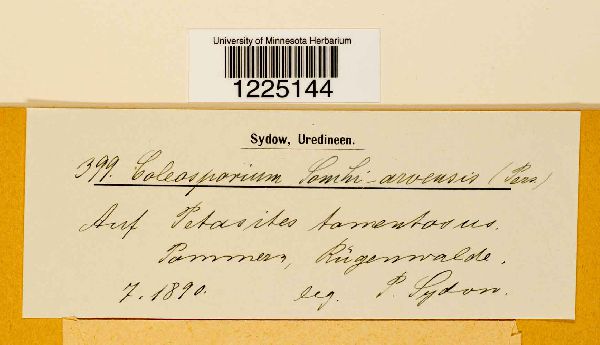 University of Minnesota Herbarium
1225144
Sydow, Uredineen.
399. Coleosporium Sonchi-arvensis (Pers.)
Auf Petasites tomentosus.
Pommern, Rügenwalde.
7. 1890. leg. P. Sydow.